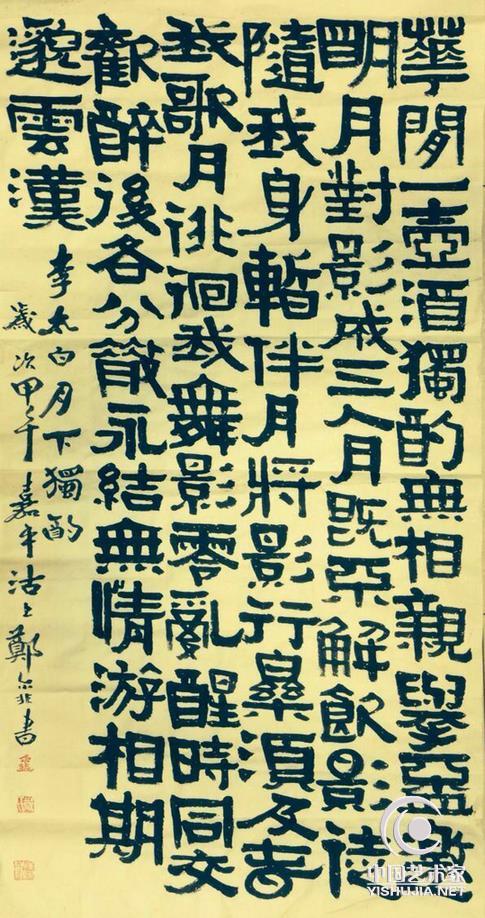 華閒一壺酒獨酌無相親舉盃邀
明月對影成三人月既不解飲影徒
隨我身暫伴月將影行樂須及春
我歌月徘徊我舞影零亂醒時同交
歡醉後各分散永結無情游相期
邈雲漢
李太白月下獨酌
歲次甲午嘉平沽上鄭書
中国艺术家
YISHUJIA.NET